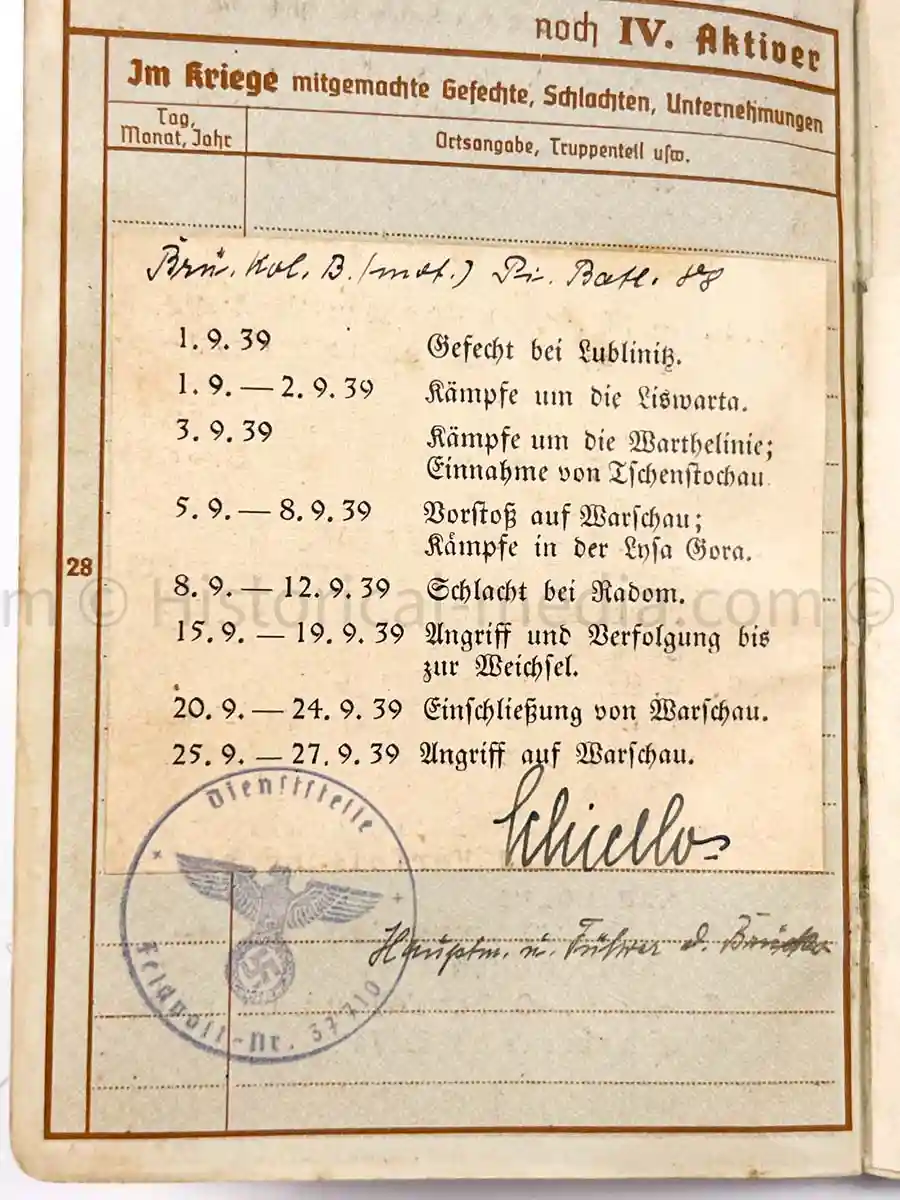 noch IV. Aktiver
Im Kriege mitgemachte Gefechte, Schlachten, Unternehmungen
Tag,
Monat, Jahr
Ortsangabe, Truppenteil usw.
Brü. Kol. B. (mot.) Pi. Batl.
1. 9. 39 Gefecht bei Lublinitz.
1. 9. — 2. 9. 39 Kämpfe um die Liswarta.
3. 9. 39 Kämpfe um die Warthelinie;
Einnahme von Tschenstochau
5. 9. — 8. 9. 39 Vorstoß auf Warschau;
Kämpfe in der Lysa Gora.
28
8. 9. — 12. 9. 39 Schlacht bei Radom.
m © Historical-media.com ©
15. 9. — 19. 9. 39 Angriff und Verfolgung bis
zur Weichsel.
20. 9. — 24. 9. 39 Einschließung von Warschau.
25. 9. — 27. 9. 39 Angriff auf Warschau.
Dienststelle
Hauptm. u. Führer d.
Feldpost-Nr. 37710